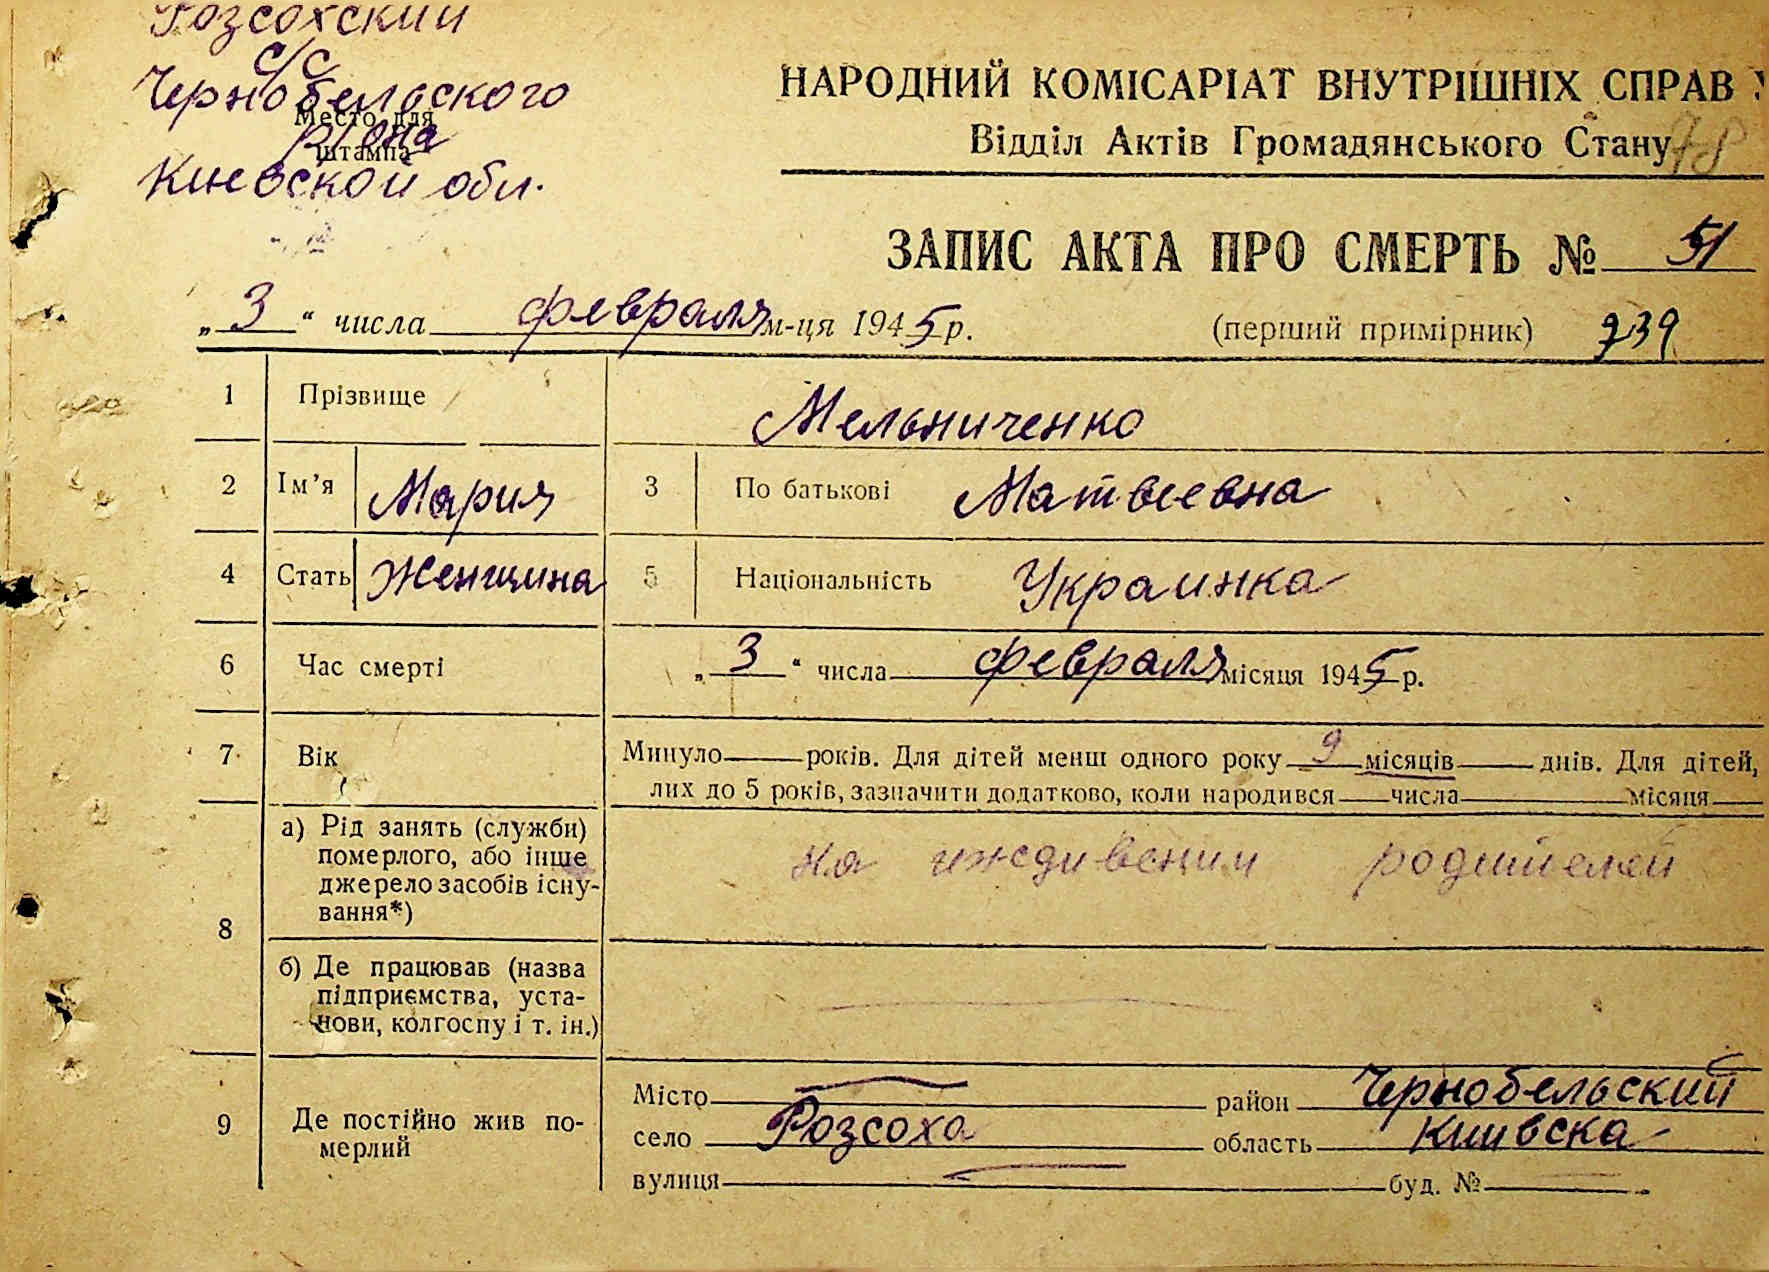 Розсохский
с/с
Чернобельского
Место для
р/она
штампа
Киевской обл.
НАРОДНИЙ КОМІСАРІАТ ВНУТРІШНІХ СПРАВ
Відділ Актів Громадянського Стану
78
ЗАПИС АКТА ПРО СМЕРТЬ № 51
„ 3 “ числа февраля м-ця 1945 р. (перший примірник) 739
1 Прізвище Мельниченко
2 Ім’я Мария 3 По батькові Матвеевна
4 Стать Женщина 5 Національність Украинка
6 Час смерті „ 3 “ числа февраля місяця 1945 р.
7 Вік Минуло — років. Для дітей менш одного року 9 місяців — днів. Для дітей,
лих до 5 років, зазначити додатково, коли народився — числа — місяця —
8 а) Рід занять (служби)
померлого, або інше
джерело засобів існу-
вання*)
на иждивении родителей
б) Де працював (назва
підприємства, уста-
нови, колгоспу і т. ін.)
9 Де постійно жив по-
мерлий
Місто — район Чернобельский
село Розсоха область Киивска
вулиця — буд. № —